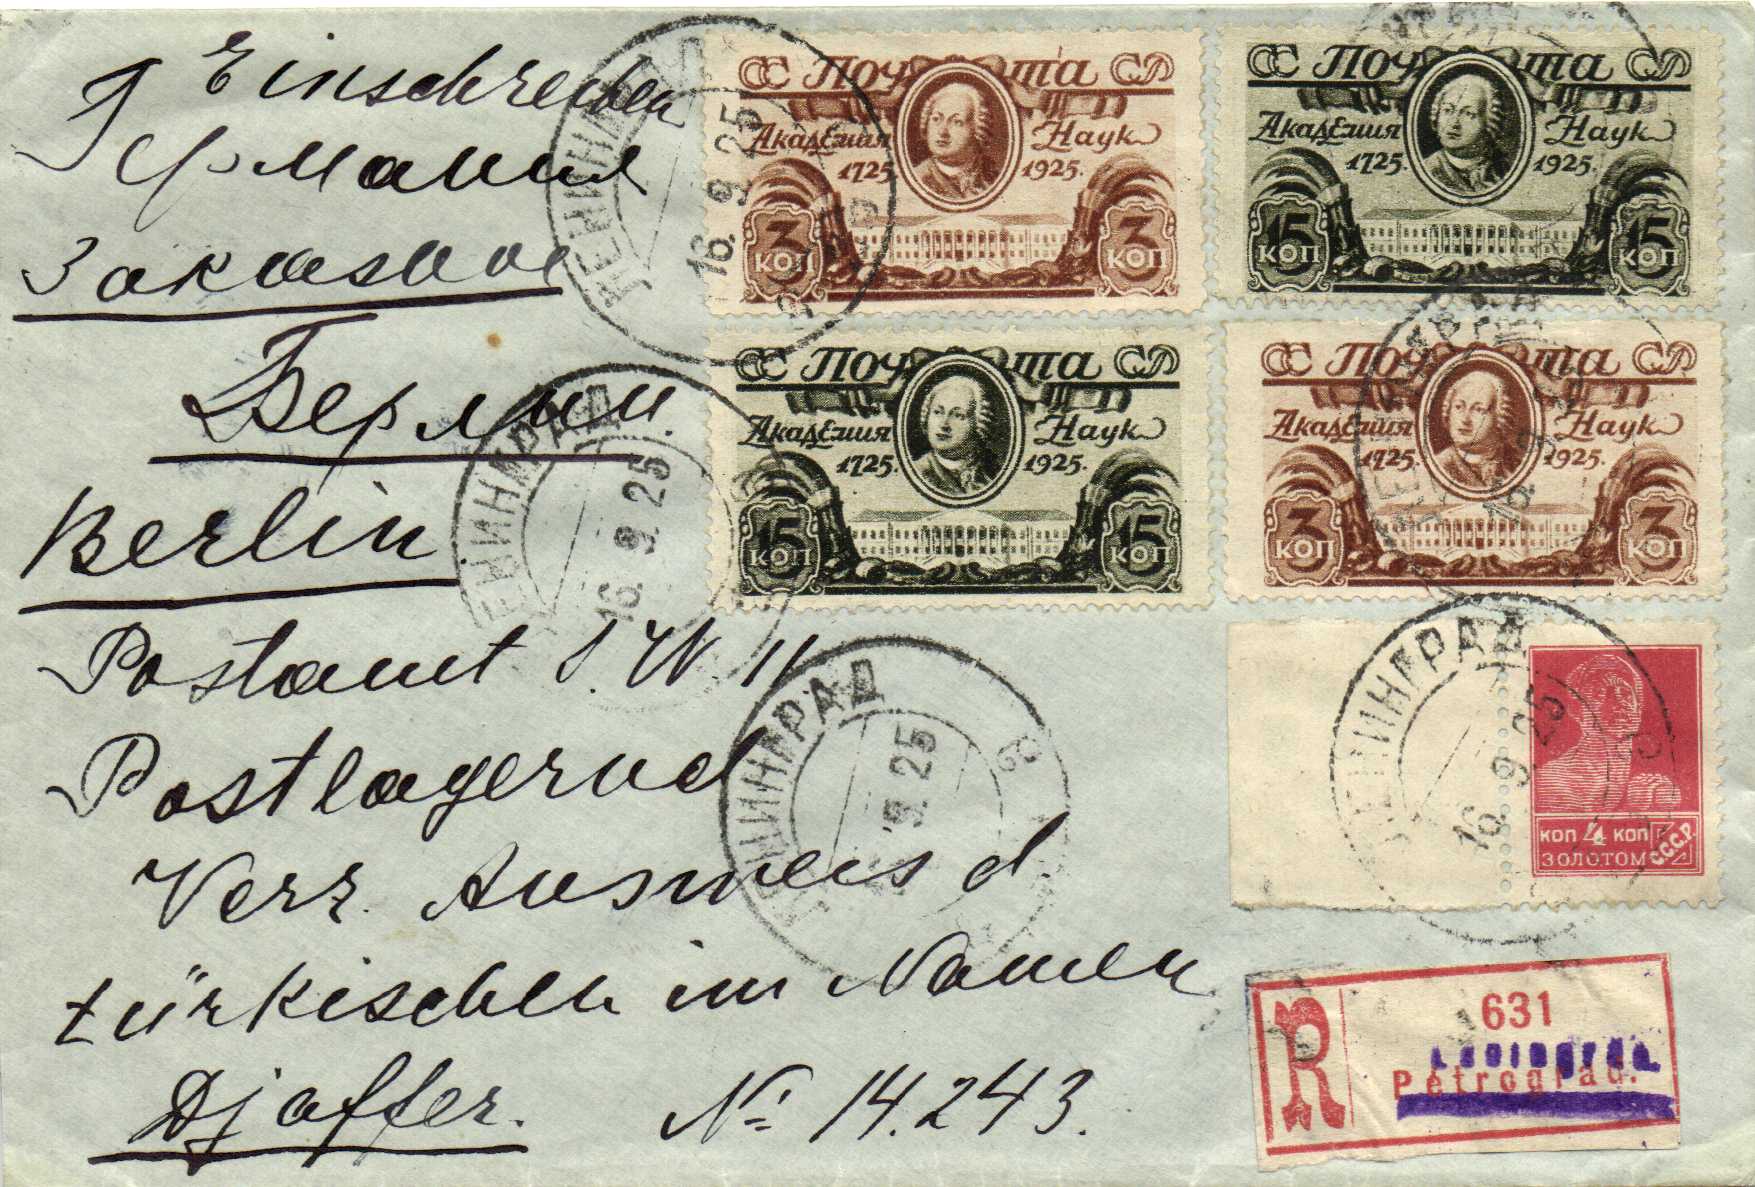 Einschreiben
Германия
Заказное
Берлин.
Berlin.
Postamt S.W 11
Postlagernd
Verz. Ausweis d.
türkischen im Namen
Djaffer. № 14.243.
СС Почта СР
Академия Наук
1725. 1925.
3 КОП 3 КОП
СС Почта СР
Академия Наук
1725. 1925.
15 КОП 15 КОП
СС Почта СР
Академия Наук
1725. 1925.
15 КОП 15 КОП
СС Почта СР
Академия Наук
1725. 1925.
3 КОП 3 КОП
КОП 4 КОП
ЗОЛОТОМ С.С.С.Р.
ЛЕНИНГРАД
16. 9. 25
ЛЕНИНГРАД
16. 9. 25
ЛЕНИНГРАД
9. 25
ЛЕНИНГРАД
16. 9 25
16. 9
R
631
Leningrad.
Petrograd.